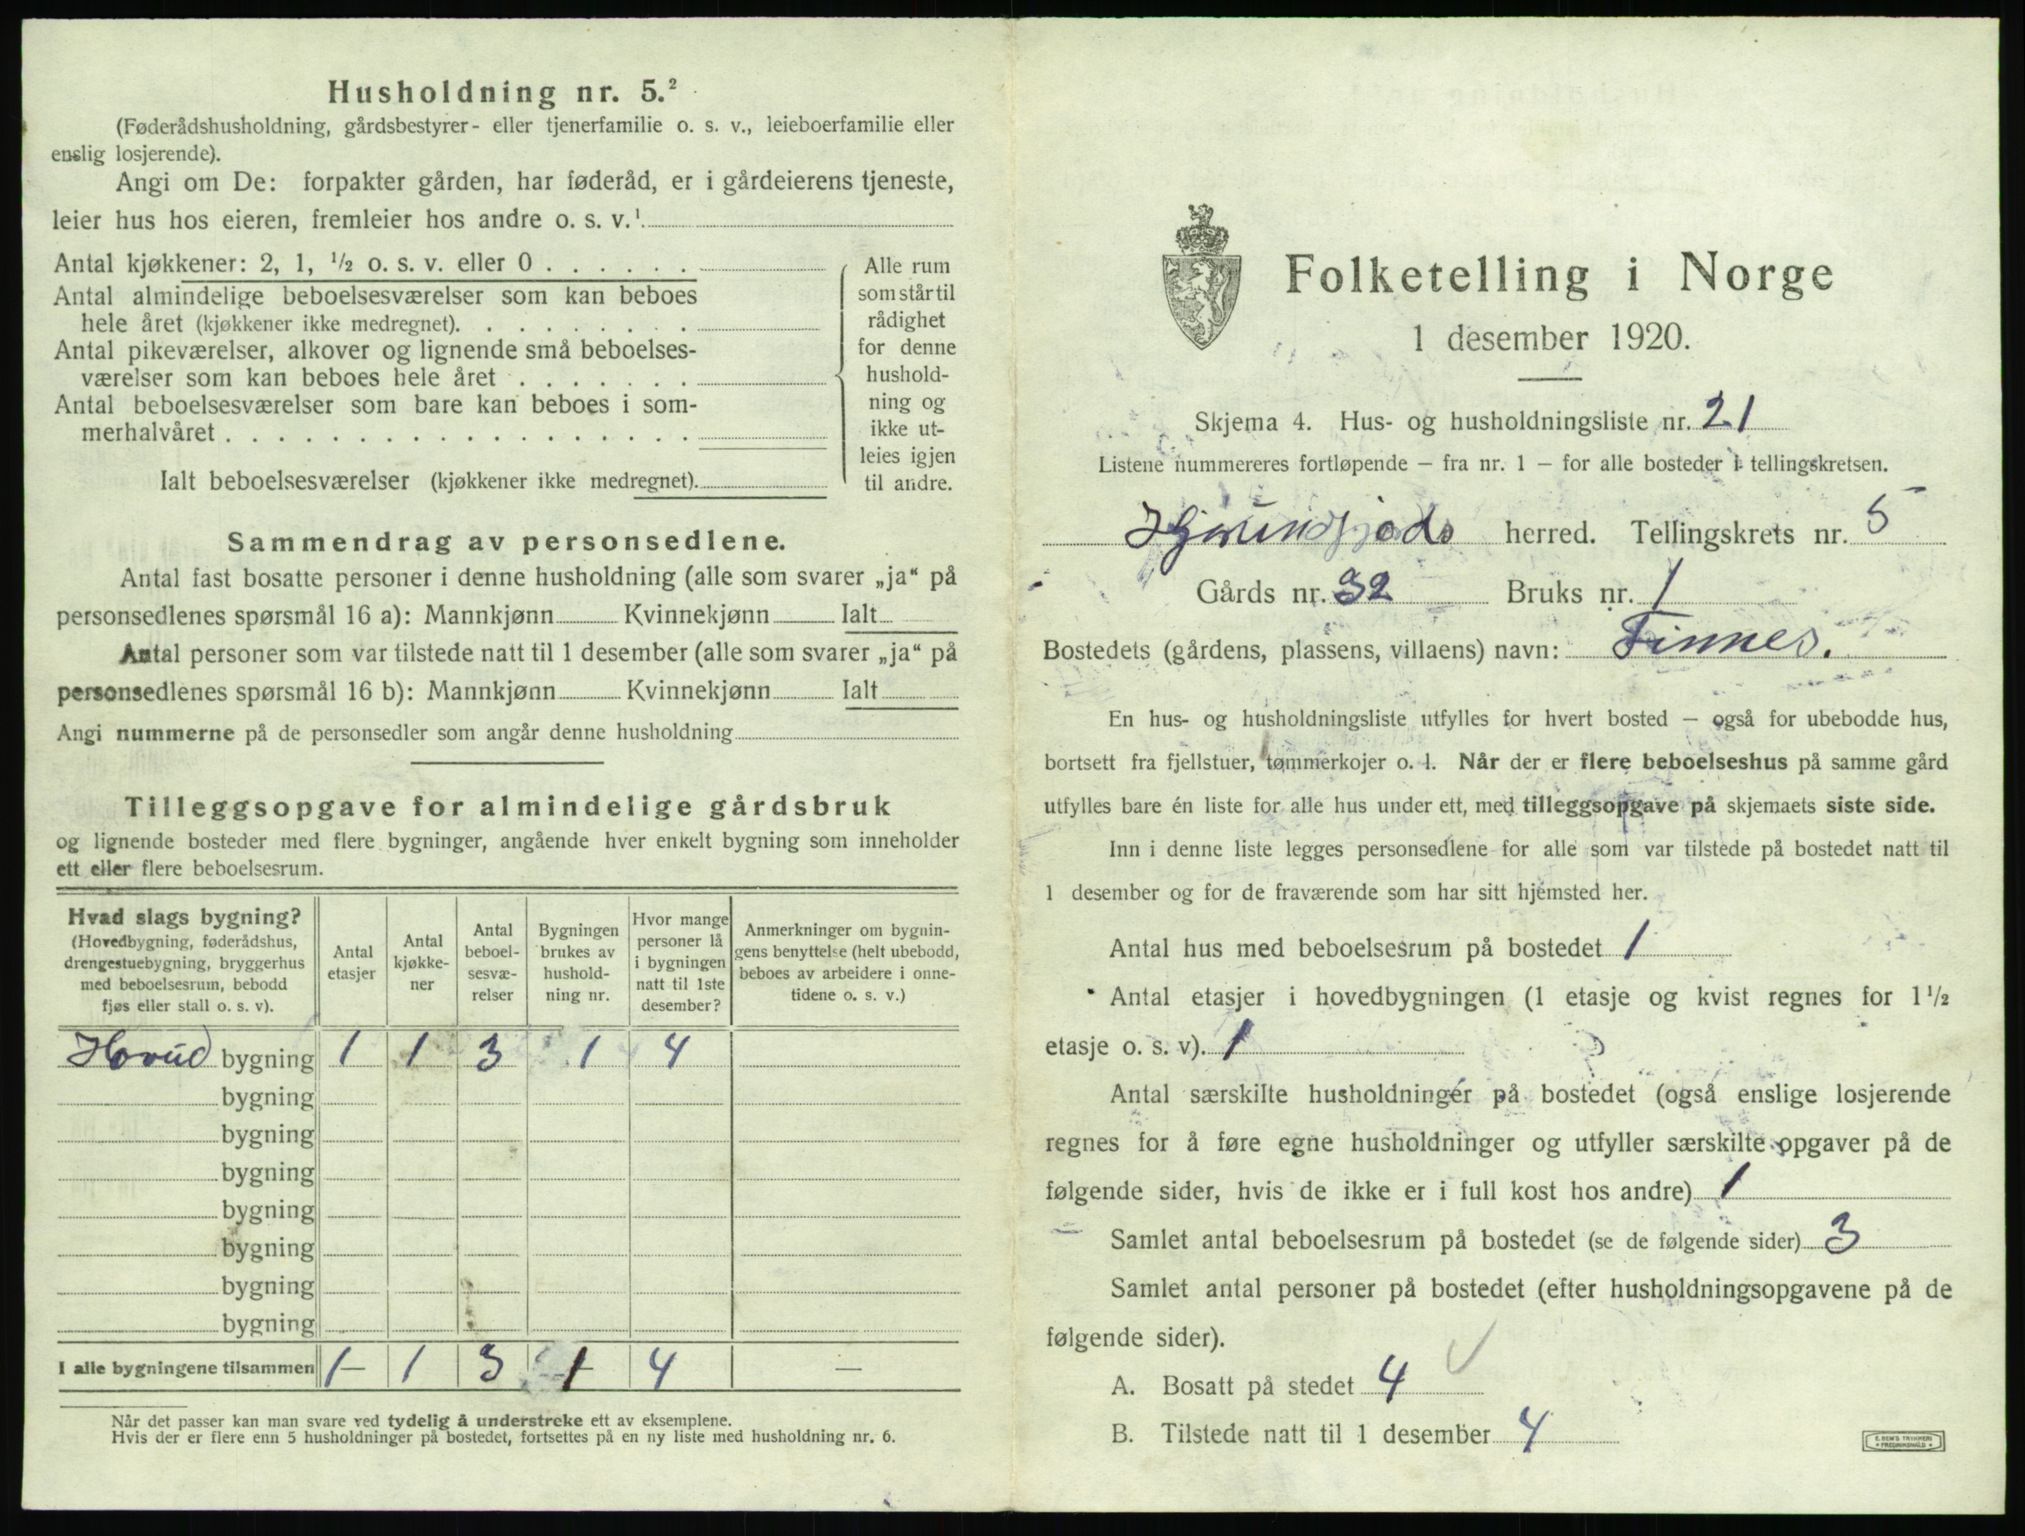 Husholdning nr. 5.²
(Føderådshusholdning, gårdsbestyrer- eller tjenerfamilie o. s. v., leieboerfamilie eller
enslig losjerende).
Angi om De: forpakter gården, har føderåd, er i gårdeierens tjeneste,
leier hus hos eieren, fremleier hos andre o. s. v.¹
Antal kjøkkener: 2, 1, ½ o. s. v. eller 0 . . . . . .
Antal almindelige beboelsesværelser som kan beboes
hele året (kjøkkener ikke medregnet). . . . . . . . .
Antal pikeværelser, alkover og lignende små beboelses-
værelser som kan beboes hele året . . . . . . .
Antal beboelsesværelser som bare kan beboes i som-
merhalvåret . . . . . . . . . . . . . . . . . .
Ialt beboelsesværelser (kjøkkener ikke medregnet).
Alle rum
som står til
rådighet
for denne
hushold-
ning og
ikke ut-
leies igjen
til andre.
Sammendrag av personsedlene.
Antal fast bosatte personer i denne husholdning (alle som svarer „ja“ på
personsedlenes spørsmål 16 a): Mannkjønn Kvinnekjønn Ialt
Antal personer som var tilstede natt til 1 desember (alle som svarer „ja“ på
personsedlenes spørsmål 16 b): Mannkjønn Kvinnekjønn Ialt
Angi nummerne på de personsedler som angår denne husholdning
Tilleggsopgave for almindelige gårdsbruk
og lignende bosteder med flere bygninger, angående hver enkelt bygning som inneholder
ett eller flere beboelsesrum.
Hvad slags bygning?
(Hovedbygning, føderådshus,
drengestuebygning, bryggerhus
med beboelsesrum, bebodd
fjøs eller stall o. s. v).
Antal
etasjer
Antal
kjøkke-
ner
Antal
beboel-
sesvæ-
relser
Bygningen
brukes av
hushold-
ning nr.
Hvor mange
personer lå
i bygningen
natt til 1ste
desember?
Anmerkninger om bygnin-
gens benyttelse (helt ubebodd,
beboes av arbeidere i onne-
tidene o. s. v.)
Hovud bygning 1 1 3 1 4
bygning
bygning
bygning
bygning
bygning
bygning
bygning
I alle bygningene tilsammen 1 1 3 1 4 —
Når det passer kan man svare ved tydelig å understreke ett av eksemplene.
Hvis der er flere enn 5 husholdninger på bostedet, fortsettes på en ny liste med husholdning nr. 6.
Folketelling i Norge
1 desember 1920.
Skjema 4. Hus- og husholdningsliste nr. 21
Listene nummereres fortløpende – fra nr. 1 – for alle bosteder i tellingskretsen.
Hjørundfjords herred. Tellingskrets nr. 5
Gårds nr. 32 Bruks nr. 1
Bostedets (gårdens, plassens, villaens) navn: Finnes.
En hus- og husholdningsliste utfylles for hvert bosted – også for ubebodde hus,
bortsett fra fjellstuer, tømmerkojer o. l. Når der er flere beboelseshus på samme gård
utfylles bare én liste for alle hus under ett, med tilleggsopgave på skjemaets siste side.
Inn i denne liste legges personsedlene for alle som var tilstede på bostedet natt til
1 desember og for de fraværende som har sitt hjemsted her.
Antal hus med beboelsesrum på bostedet 1
Antal etasjer i hovedbygningen (1 etasje og kvist regnes for 1½
etasje o. s. v). 1
Antal særskilte husholdninger på bostedet (også enslige losjerende
regnes for å føre egne husholdninger og utfyller særskilte opgaver på de
følgende sider, hvis de ikke er i full kost hos andre) 1
Samlet antal beboelsesrum på bostedet (se de følgende sider) 3
Samlet antal personer på bostedet (efter husholdningsopgavene på de
følgende sider).
A. Bosatt på stedet 4
B. Tilstede natt til 1 desember 4